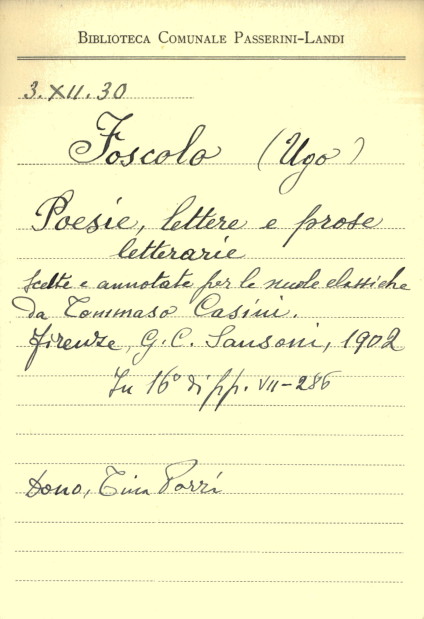 BIBLIOTECA COMUNALE PASSERINI-LANDI
3.XII.30
Foscolo (Ugo)
Poesie, lettere e prose
letterarie
scelte e annotate per le scuole classiche
da Tommaso Casini.
Firenze, G. C. Sansoni, 1902
In 16° di pp. VII-286
Dono, Tina Porri